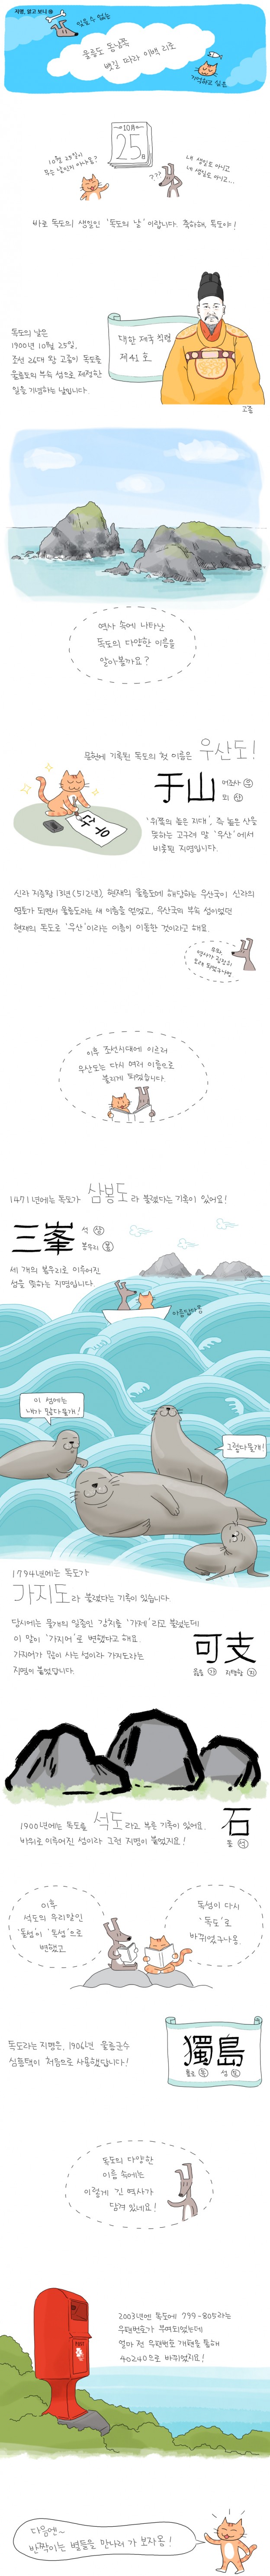 지명, 알고 보니 ⑱
잊을 수 없는
울릉도 동남쪽
뱃길 따라 이백 리로
기억하고 싶은
10월
25일
10월 25일이
무슨 날인지 아냐옹?
??
내 생일도 아니고
네 생일도 아니고...
바로 독도의 생일인 '독도의 날' 이랍니다. 축하해, 독도야!
독도의 날은
1900년 10월 25일,
조선 26대 왕 고종이 독도를
울릉도의 부속 섬으로 제정한
일을 기념하는 날입니다.
대한 제국 칙령
제41호
고종
역사 속에 나타난
독도의 다양한 이름을
알아볼까요?
문헌에 기록된 독도의 첫 이름은 우산도!
于山
어조사 우
뫼 산
'위쪽의 높은 지대', 즉 높은 산을
뜻하는 고구려 말 '우산'에서
비롯된 지명입니다.
신라 지증왕 13년(512년), 현재의 울릉도에 해당하는 우산국이 신라의
영토가 되면서 울릉도라는 새 이름을 얻었고, 우산국의 부속 섬이었던
현재의 독도로 '우산'이라는 이름이 이동한 것이라고 해요.
이후 조선시대에 이르러
우산도는 다시 여러 이름으로
불리게 되었습니다
1471년에는 독도가 삼봉도라 불렸다는 기록이 있어요!
三峯
석 삼
봉우리 봉
세 개의 봉우리로 이루어진
섬을 뜻하는 지명입니다.
이 섬에는
내가 많다물개!
그렇다물개!
1794년에는 독도가
가지도라 불렸다는 기록이 있습니다.
당시에는 물개의 일종인 강치를 '가제'라고 불렀는데
이 말이 '가지어'로 변했다고 해요.
가지어가 많이 사는 섬이라 가지도라는
지명이 붙었답니다.
可支
옳을 가
지탱할 지
1900년에는 독도를 석도라고 부른 기록이 있어요.
바위로 이루어진 섬이라 그런 지명이 붙었지요!
石
돌 석
이후
석도의 우리말인
'돌섬'이 '독섬'으로
변했고,
독섬이 다시
'독도'로
바뀌었구나옹.
독도라는 지명은, 1906년 울릉군수
심흥택이 처음으로 사용했답니다!
獨島
홀로 독 섬 도
독도의 다양한
이름 속에는
이렇게 긴 역사가
담겨 있네요!
2003년엔 독도에 799-805라는
우편번호가 부여되었는데
얼마 전 우편번호 개편을 통해
40240으로 바뀌었지요!
다음엔~
반짝이는 별들을 만나러 가 보자옹!